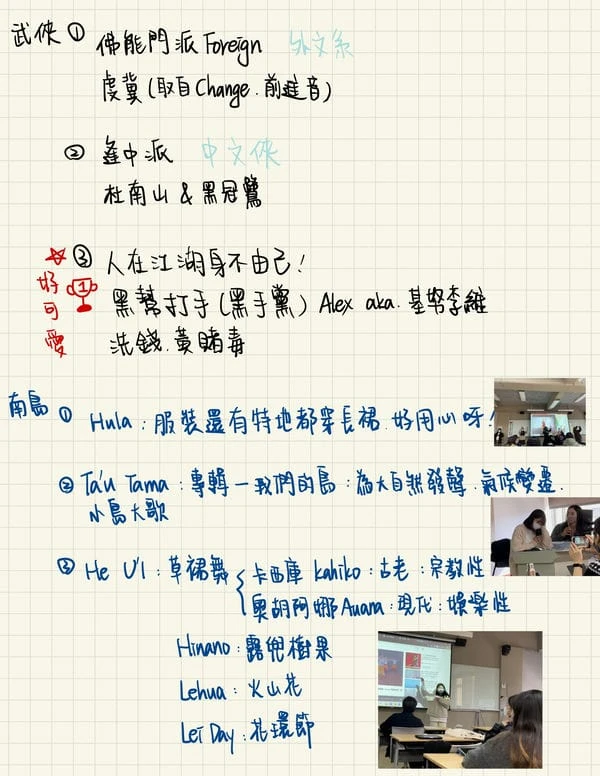 武俠 ① 佛能門派 Foreign 外文系
虔冀(取自Change.前進音)
② 逢中派 中文俠
杜南山 & 黑冠鷺
好可愛
1
③ 人在江湖身不由己!
黑幫打手(黑手黨) Alex aka.基努李維
洗錢.黃賭毒
南島 ① Hula:服裝還有特地都穿長裙.好用心呀!
② Ta'u Tama:專輯-我們的島:為大自然發聲.氣候變遷.
小島大歌
③ He U'I:草裙舞
卡西庫 kahiko:古老:宗教性
奧胡阿娜 Auana:現代:娛樂性
Hinano:露兜樹果
Lehua:火山花
Lei Day:花環節